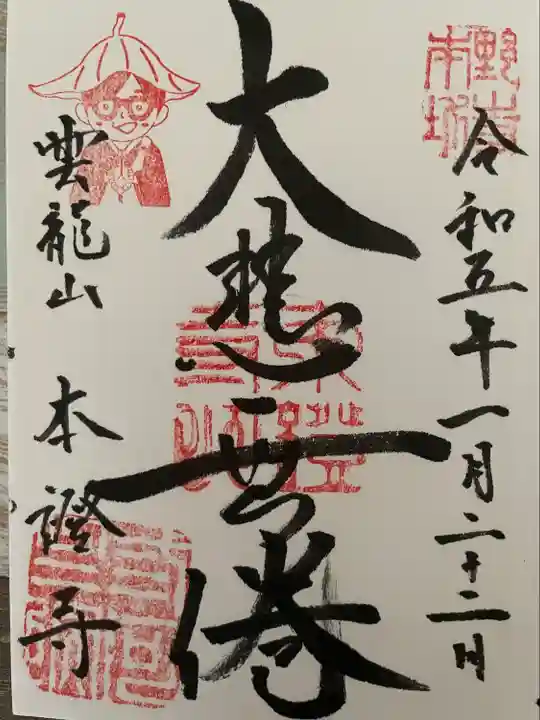 令和五年一月二十二日
大悲無倦
雲龍山 本證寺